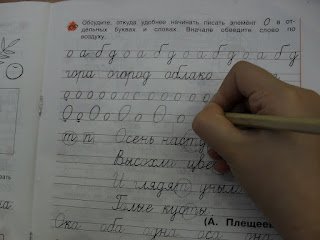 Обсудите, откуда удобнее начинать писать элемент О в от-
дельных буквах и словах. Вначале обведите слово по
воздуху.
о а б д о а б д о а б д о а б д
гора огород облако
О О О о О о
т, п. Осень насту
Высохли цве
И глядят уныло
Голые кусты.
(А. Плещеев
Ока оба одна оса она